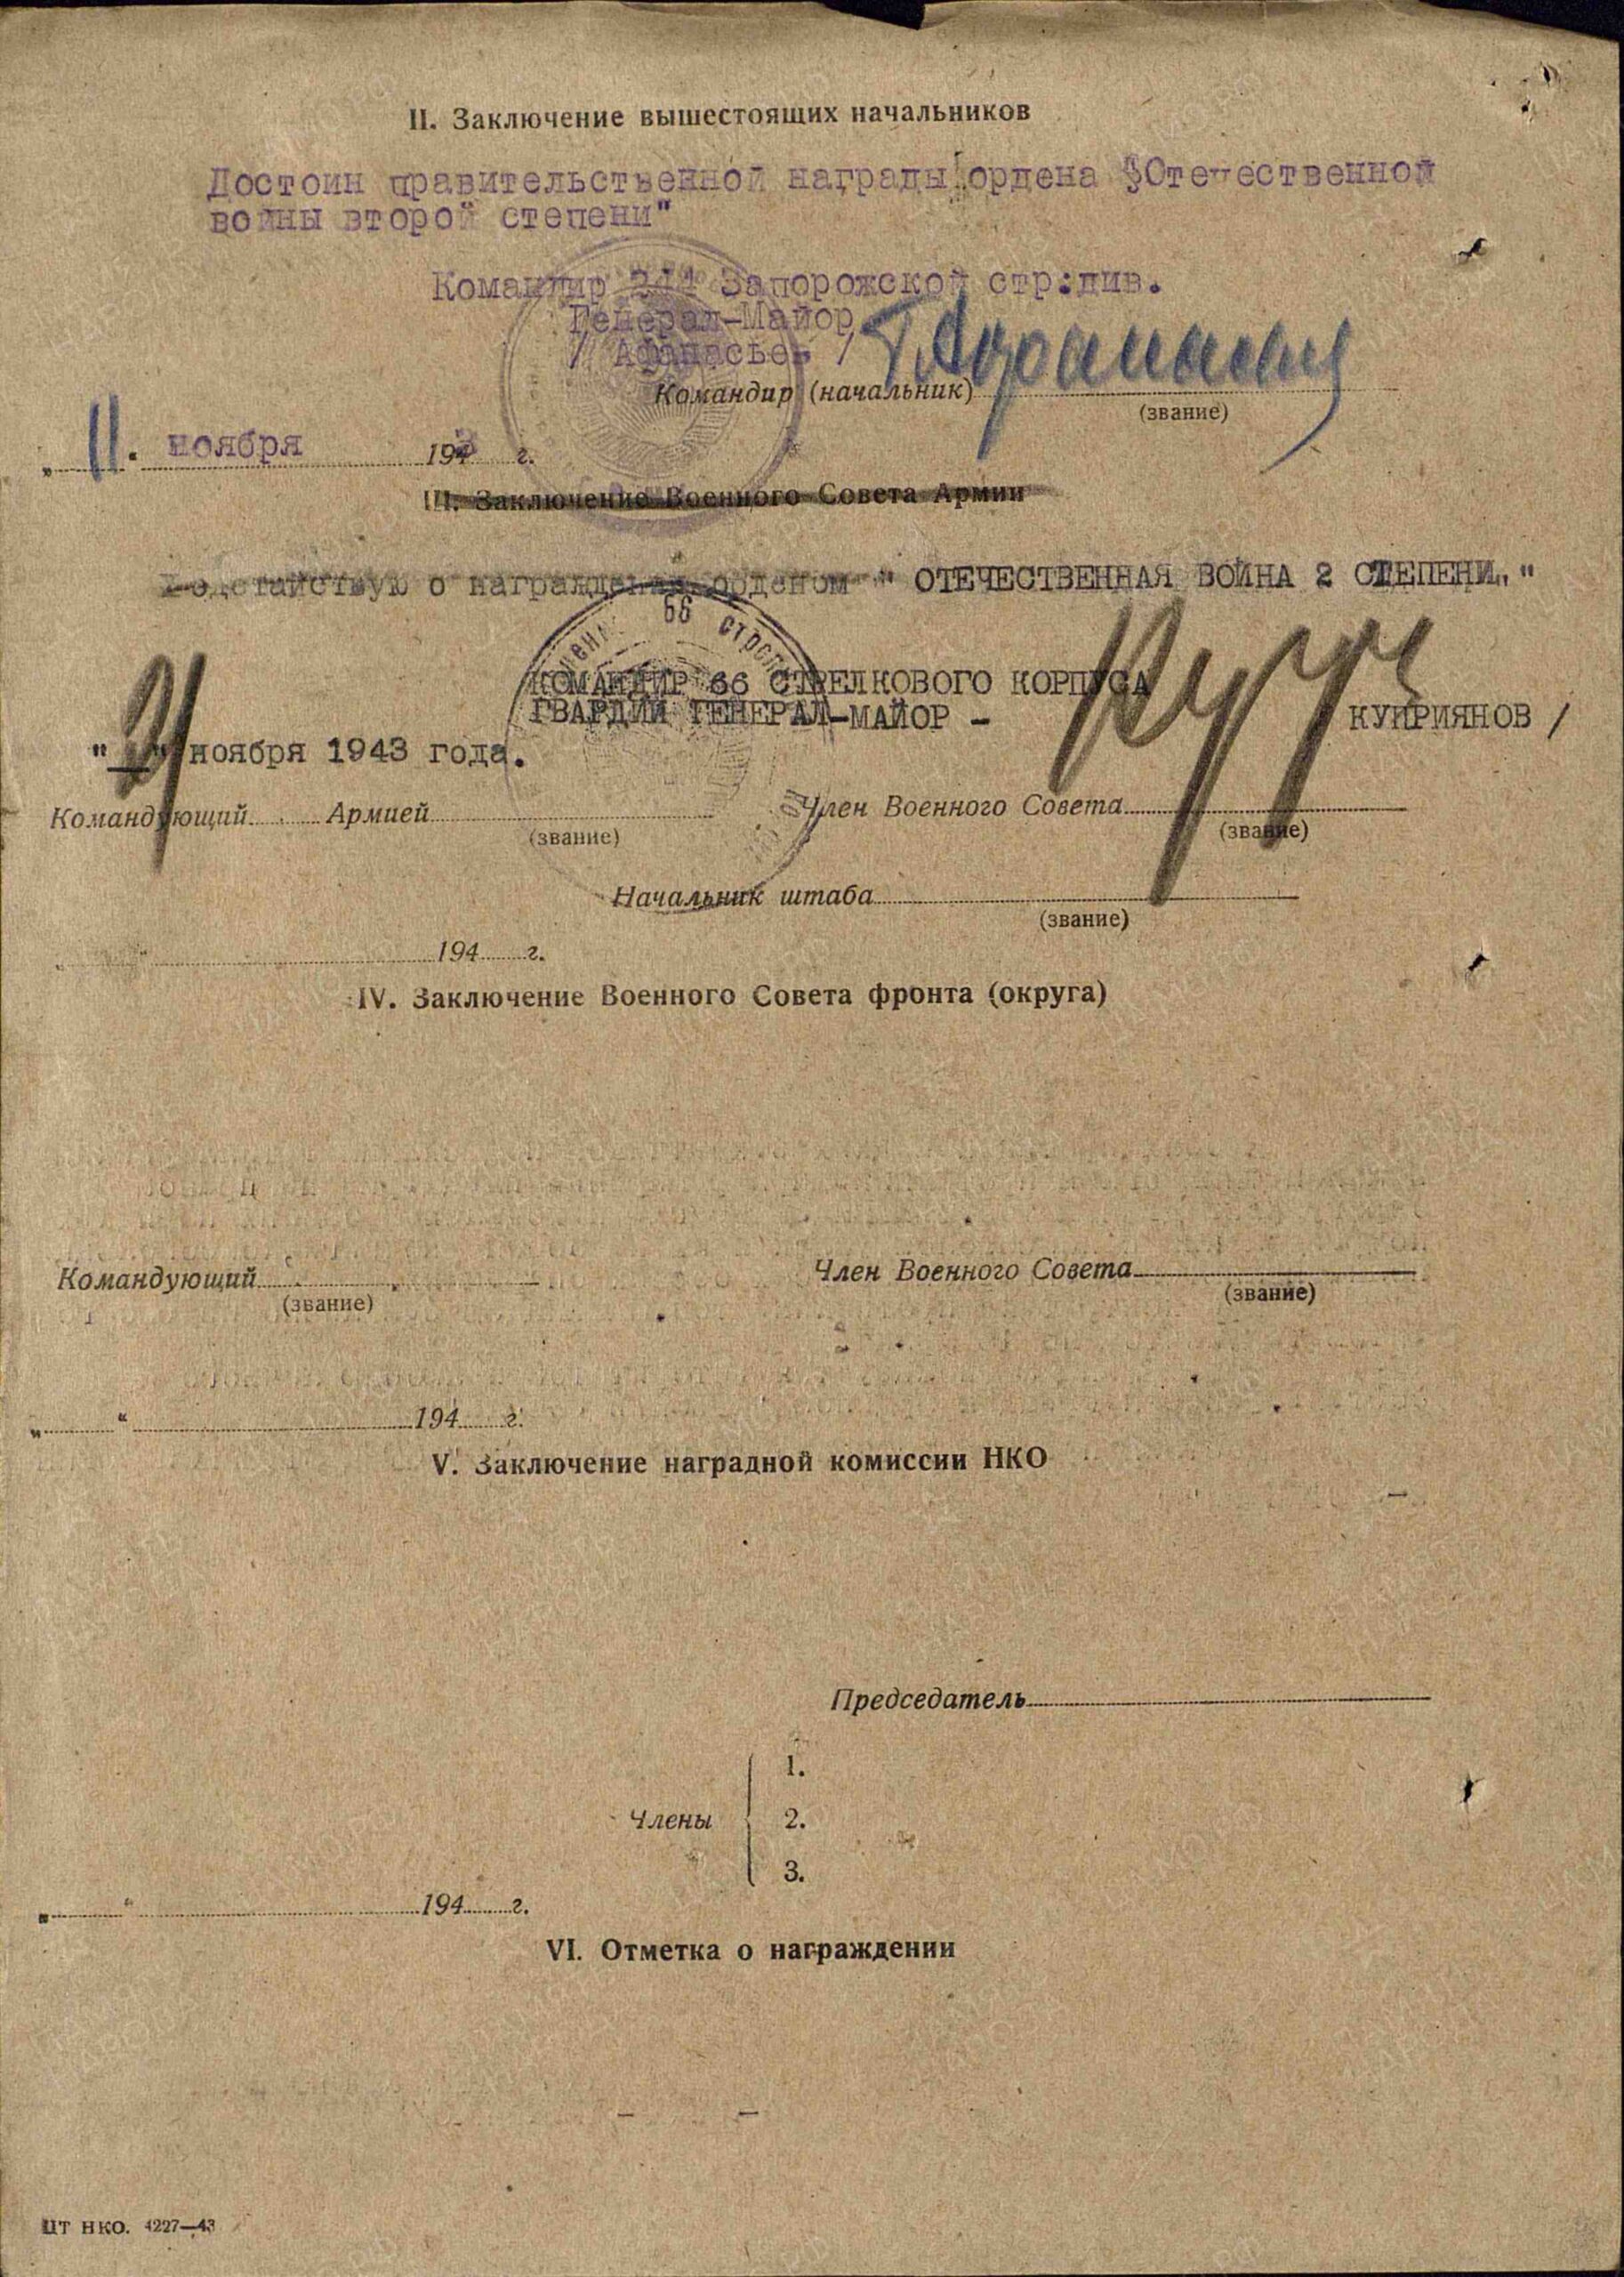 II. Заключение вышестоящих начальников
Достоин правительственной награды ордена "Отечественной
войны второй степени"
Командир 244 Запорожской стр:див.
Генерал-Майор
/ Афанасьев /
Командир (начальник)
(звание)
„ 11. ноября 1943 г.
III. Заключение Военного Совета Армии
Ходатайствую о награждении орденом " ОТЕЧЕСТВЕННАЯ ВОЙНА 2 СТЕПЕНИ."
66 стрелк
КОМАНДИР 66 СТРЕЛКОВОГО КОРПУСА
ГВАРДИИ ГЕНЕРАЛ-МАЙОР - КУПРИЯНОВ /
" " ноября 1943 года.
Командующий Армией Член Военного Совета
(звание) (звание)
Начальник штаба
(звание)
„ “ 194 г.
IV. Заключение Военного Совета фронта (округа)
Командующий Член Военного Совета
(звание) (звание)
„ “ 194 г.
V. Заключение наградной комиссии НКО
Председатель
1.
Члены 2.
3.
„ “ 194 г.
VI. Отметка о награждении
ЦТ НКО. 4227—43